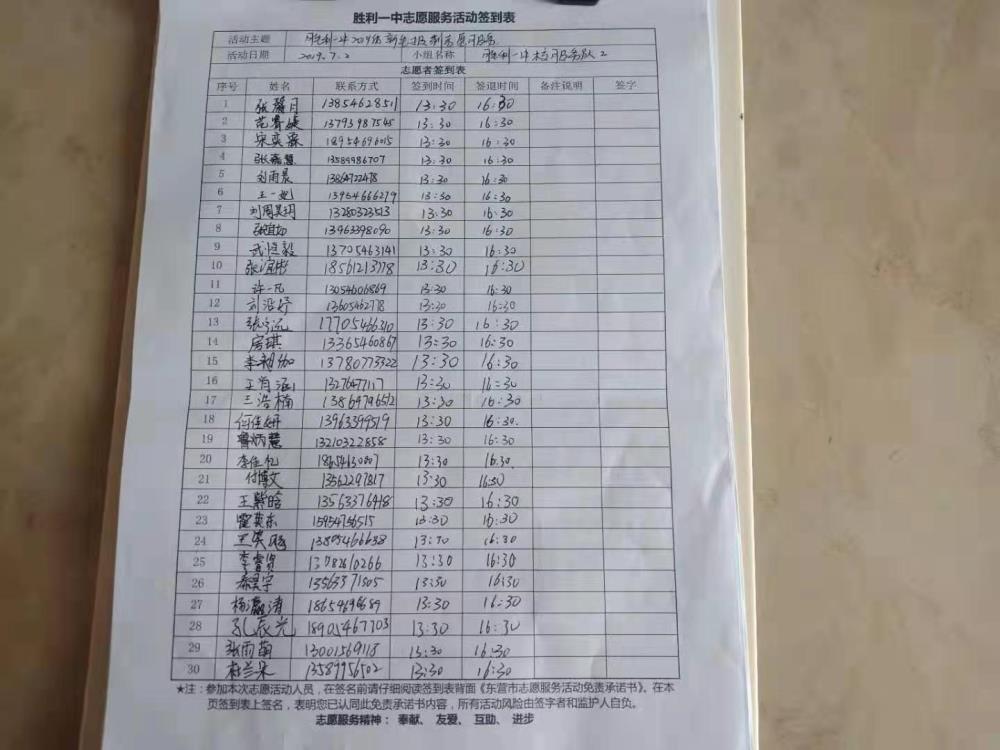 胜利一中志愿服务活动签到表
活动主题 胜利一中2019级新生报到志愿服务
活动日期 2019.7.2 小组名称 胜利一中校服务队2
志愿者签到表
序号 姓名 联系方式 签到时间 签退时间 备注说明 签字
1 张馨月 13854628511 13:30 16:30
2 13793987545 13:30 16:30
3 宋奕霖 18954696015 13:30 16:30
4 张嘉慧 13589986707 13:30 16:30
5 刘雨晨 13864722478 13:30 16:30
6 王一 13954666279 13:30 16:30
7 13280323513 13:30 16:30
8 13963398090 13:30 16:30
9 武恒毅 13705463141 13:30 16:30
10 18561213778 13:30 16:30
11 许一凡 13054606869 13:30 16:30
12 刘浩妤 13605462778 13:30 16:30
13 17705466310 13:30 16:30
14 房琪 13365460867 13:30 16:30
15 13780773322 13:30 16:30
16 王肖涵 13276477117 13:30 16:30
17 王浩楠 13:30 16:30
18 何佳妍 13963399519 13:30 16:30.
19 鲁炳慧 13210322858 13:30 16:30
20 李佳忆 18654630807 13:30 16:30
21 付博文 13562297817 13:30 16:30
22 王紫晗 13563376918 13:30 16:30
23 霍英东 15954756515 13:30 16:30
24 13805466638 13:30 16:30
25 李睿贤 13:30 16:30
26 秦昊宇 13563371505 13:30 16:30
27 杨瀛清 18659696689 13:30 16:30
28 孔辰光 18905467703 13:30 16:30
29 张雨菡 13001569118 13:30 16:30
30 杜兰朵 13589956502 13:30 16:30
★注：参加本次志愿活动人员，在签名前请仔细阅读签到表背面《东营市志愿服务活动免责承诺书》。在本
页签到表上签名，表明您已认同此免责承诺书内容，所有活动风险由签字者和监护人自负。
志愿服务精神： 奉献、 友爱、 互助、 进步